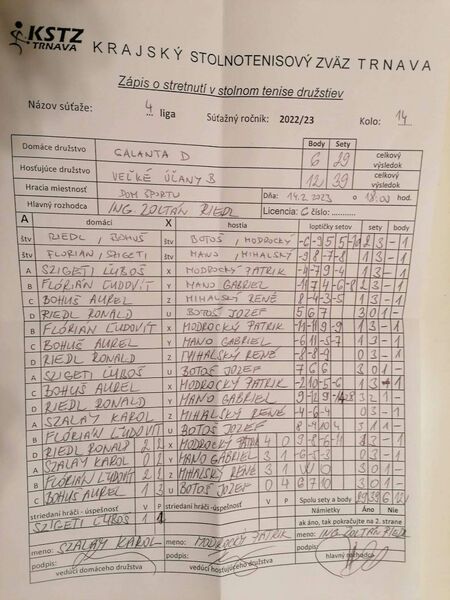 KSTZ
TRNAVA
KRAJSKÝ STOLNOTENISOVÝ ZVÄZ TRNAVA
Zápis o stretnutí v stolnom tenise družstiev
Názov súťaže: 4 liga Súťažný ročník: 2022/23 Kolo: 14
Body Sety
Domáce družstvo GALANTA D 6 29 celkový výsledok
Hosťujúce družstvo VEĽKÉ ÚĽANY B 12 39 celkový výsledok
Hracia miestnosť DOM ŠPORTU Dňa: 14.2.2023 o 18.00 hod.
Hlavný rozhodca ING. ZOLTÁN RIEDL Licencia: C číslo:
A domáci X hostia loptičky setov sety body
štv RIEDL, BOHUŠ štv BOTOŠ, MODROCKÝ
štv FLORIAN, SZIGETI štv MANO, MIHALSKÝ -9 8 -7 -8 1 3 - 1
A SZIGETI ĽUBOŠ X MODROCKÝ PATRIK -4 -7 9 -4 1 3 - 1
B FLÓRIÁN ĽUDOVÍT Y MANO GABRIEL
C BOHUŠ AUREL Z MIHALSKÝ RENÉ 8 -4 -3 -5 1 3 - 1
D RIEDL RONALD U BOTOŠ JOZEF 5 6 7 3 0 1 -
B FLÓRIÁN ĽUDOVÍT X MODROCKÝ PATRIK -11 -11 9 -9 1 3 - 1
C BOHUŠ AUREL Y MANO GABRIEL -6 11 -5 -7 1 3 - 1
D RIEDL RONALD Z MIHALSKÝ RENÉ -8 -8 -9 0 3 - 1
A SZIGETI ĽUBOŠ U BOTOŠ JOZEF 7 6 6 3 0 1 -
C BOHUŠ AUREL X MODROCKÝ PATRIK -2 10 -5 -6 1 3 - 1
D RIEDL RONALD Y MANO GABRIEL
A SZALAY KAROL Z MIHALSKÝ RENÉ -4 -6 -4 0 3 - 1
B FLORIAN ĽUDOVIT U BOTOŠ JOZEF 8 -9 10 4 3 1 1 -
D RIEDL RONALD 2 2 X MODROCKÝ PATRIK 4 0 9 -8 -6 -11 1 3 - 1
A SZALAY KAROL 0 2 Y MANO GABRIEL 3 1 -6 -5 -3 0 3 - 1
B FLORIAN ĽUDOVIT 2 2 Z MIHALSKÝ RENÉ 3 1 W O 3 0 1 -
C BOHUŠ AUREL 1 3 U BOTOŠ JOZEF 0 4 6 7 10 3 0 1 -
striedaní hráči - úspešnosť V P striedaní hráči - úspešnosť V P Spolu sety a body 29 39 6 12
SZIGETI ĽUBOŠ 1 1 Námietky Áno Nie
ak áno, tak pokračujte na 2. strane
meno: SZALAY KAROL meno: MODROCKÝ PATRIK meno: ING. ZOLTÁN RIEDL
podpis: podpis:
vedúci domáceho družstva vedúci hosťujúceho družstva hlavný rozhodca